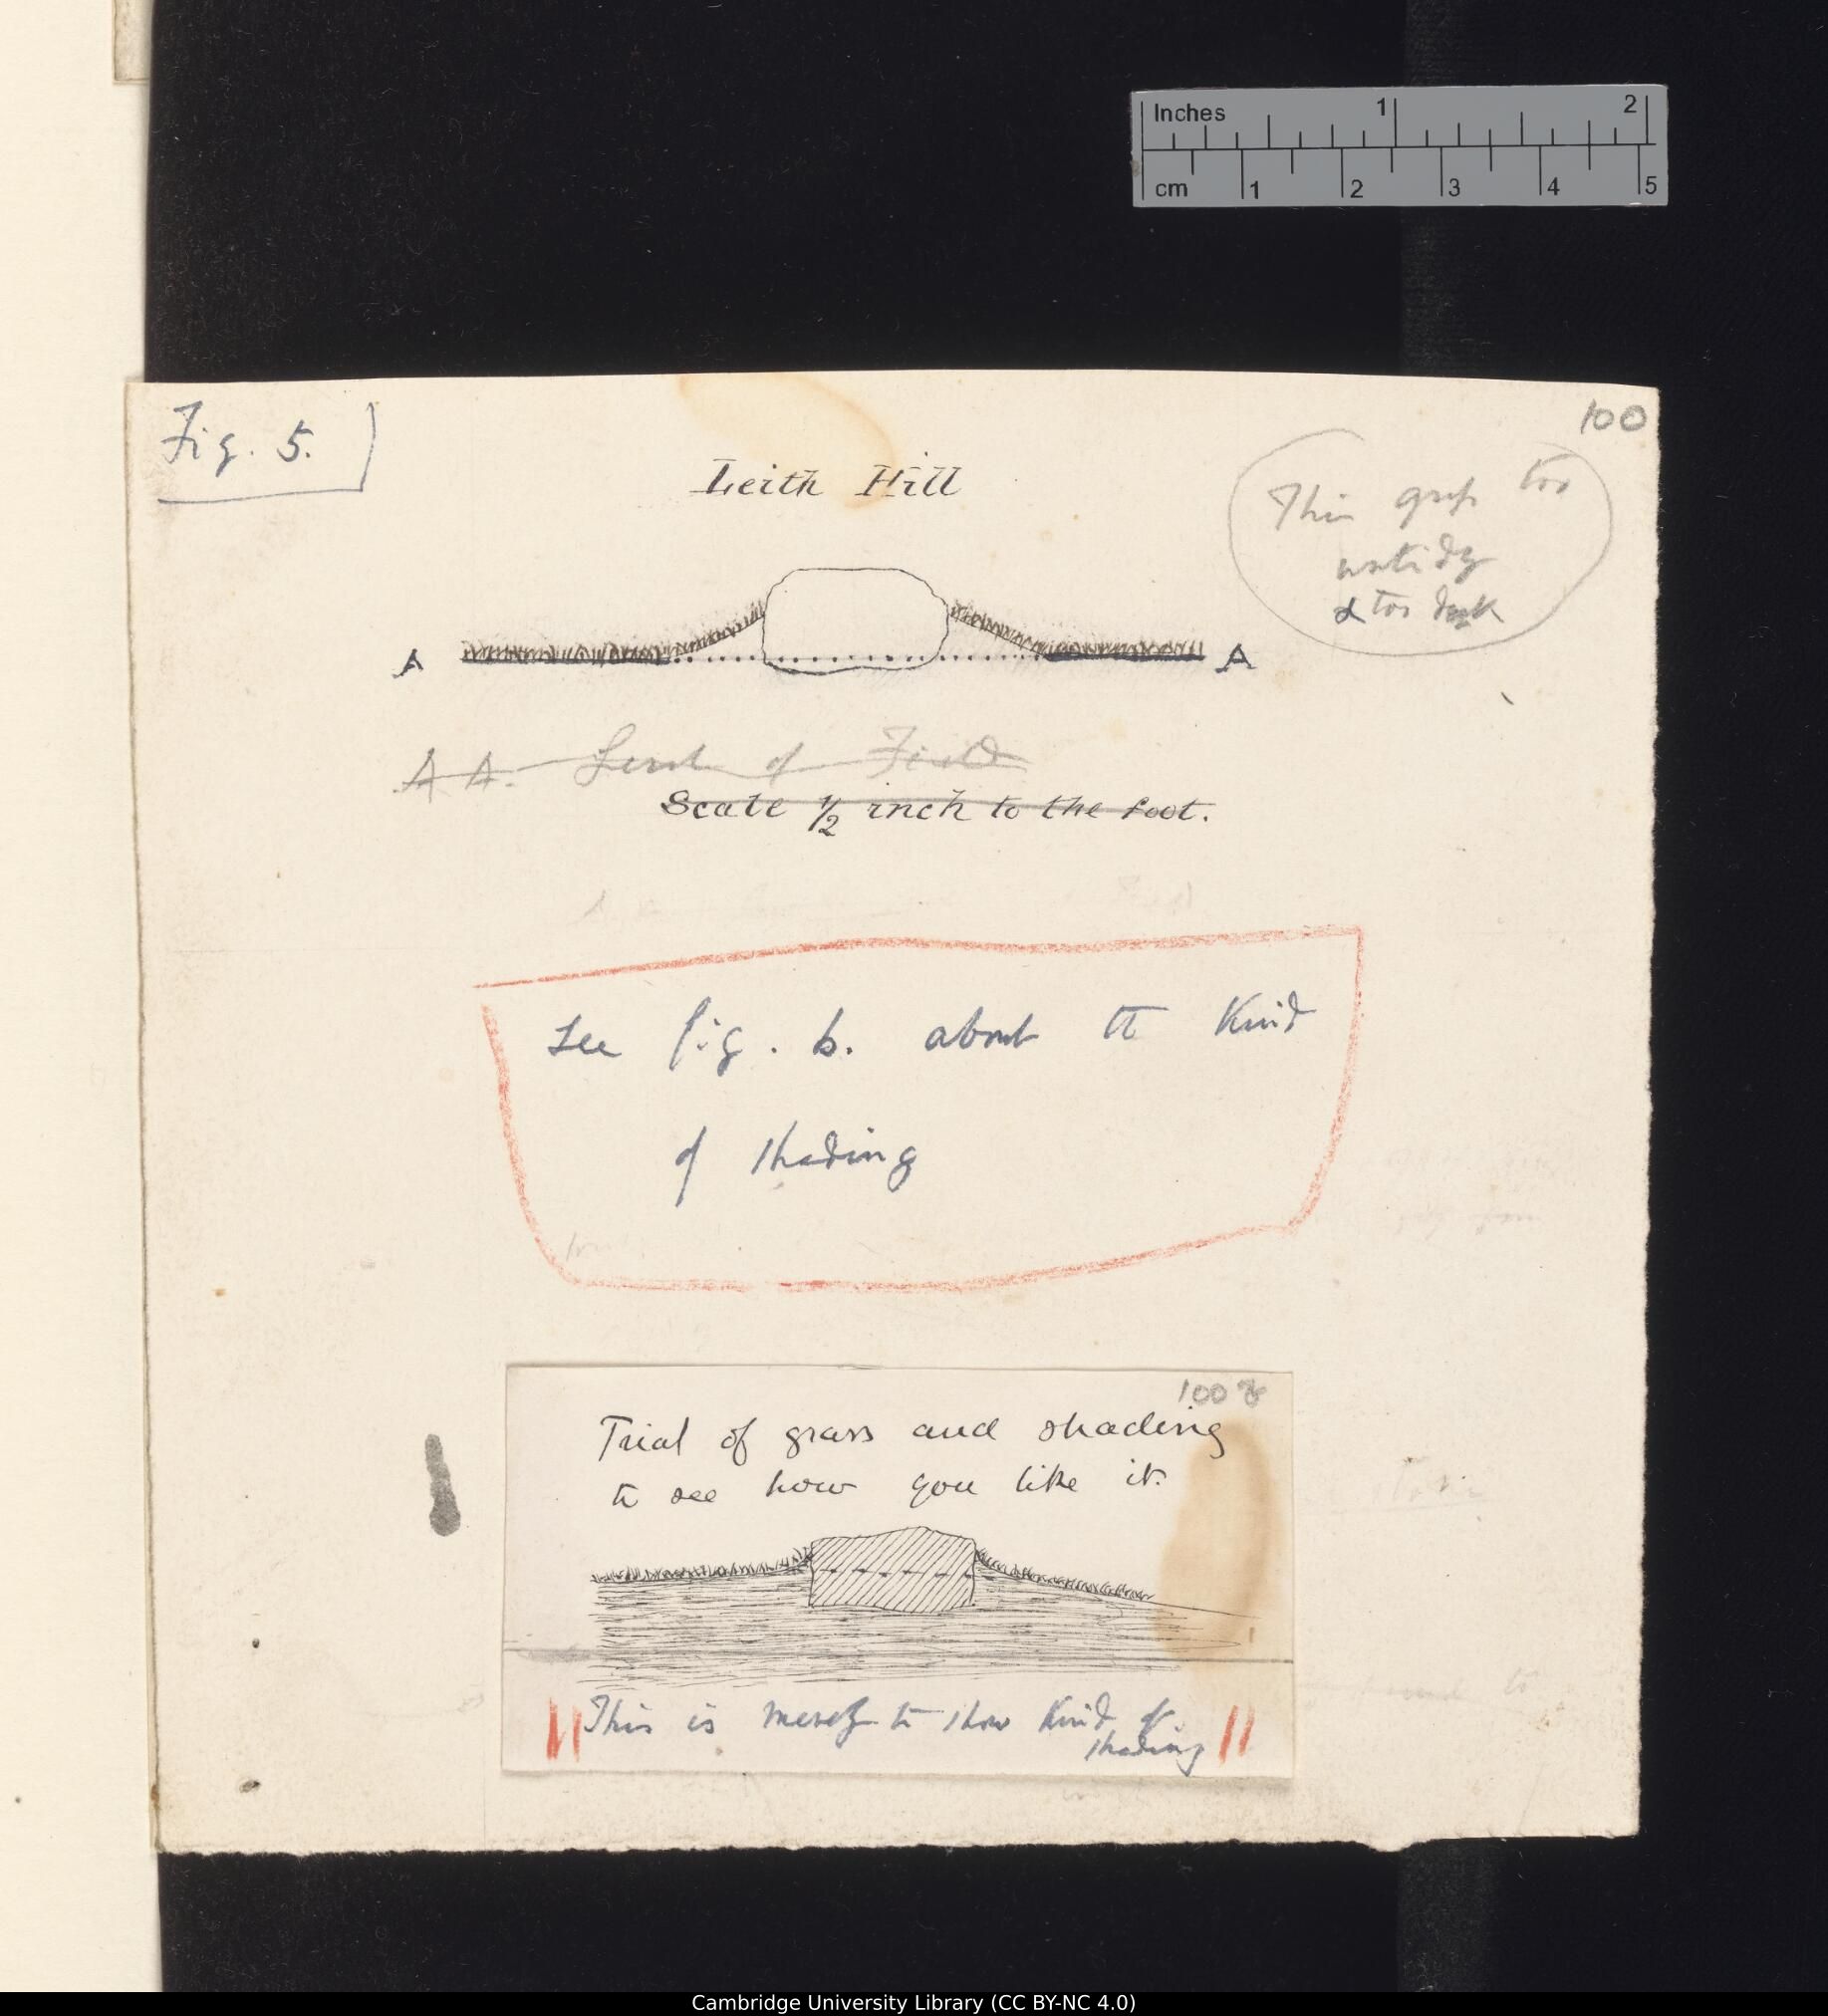 Inches 1 2
cm 1 2 3 4 5
Fig. 5.
100
Leith Hill
This grass too
untidy
& too dark
A A
A A. Level of Field
Scale 1/2 inch to the foot.
See fig. 6. about the kind
of shading
100
Trial of grass and shading
to see how you like it.
This is merely to show kind of
shading
Cambridge University Library (CC BY-NC 4.0)